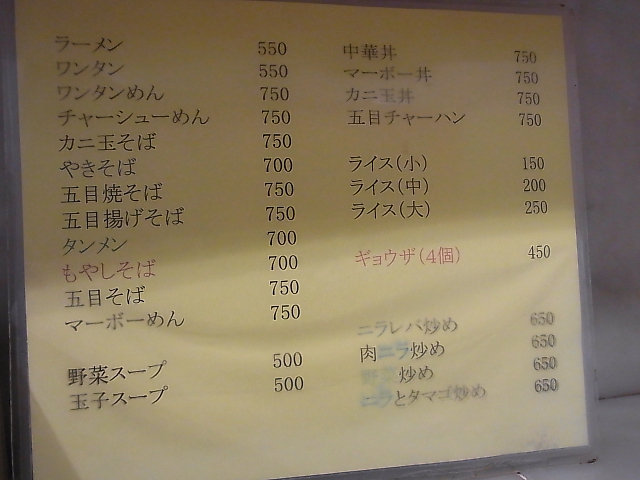 ラーメン 550
ワンタン 550
ワンタンめん 750
チャーシューめん 750
カニ玉そば 750
やきそば 700
五目焼そば 750
五目揚げそば 750
タンメン 700
もやしそば 700
五目そば 750
マーボーめん 750
野菜スープ 500
玉子スープ 500
中華丼 750
マーボー丼 750
カニ玉丼 750
五目チャーハン 750
ライス(小) 150
ライス(中) 200
ライス(大) 250
ギョウザ(4個) 450
ニラレバ炒め 650
肉ニラ炒め 650
野菜炒め 650
ニラとタマゴ炒め 650